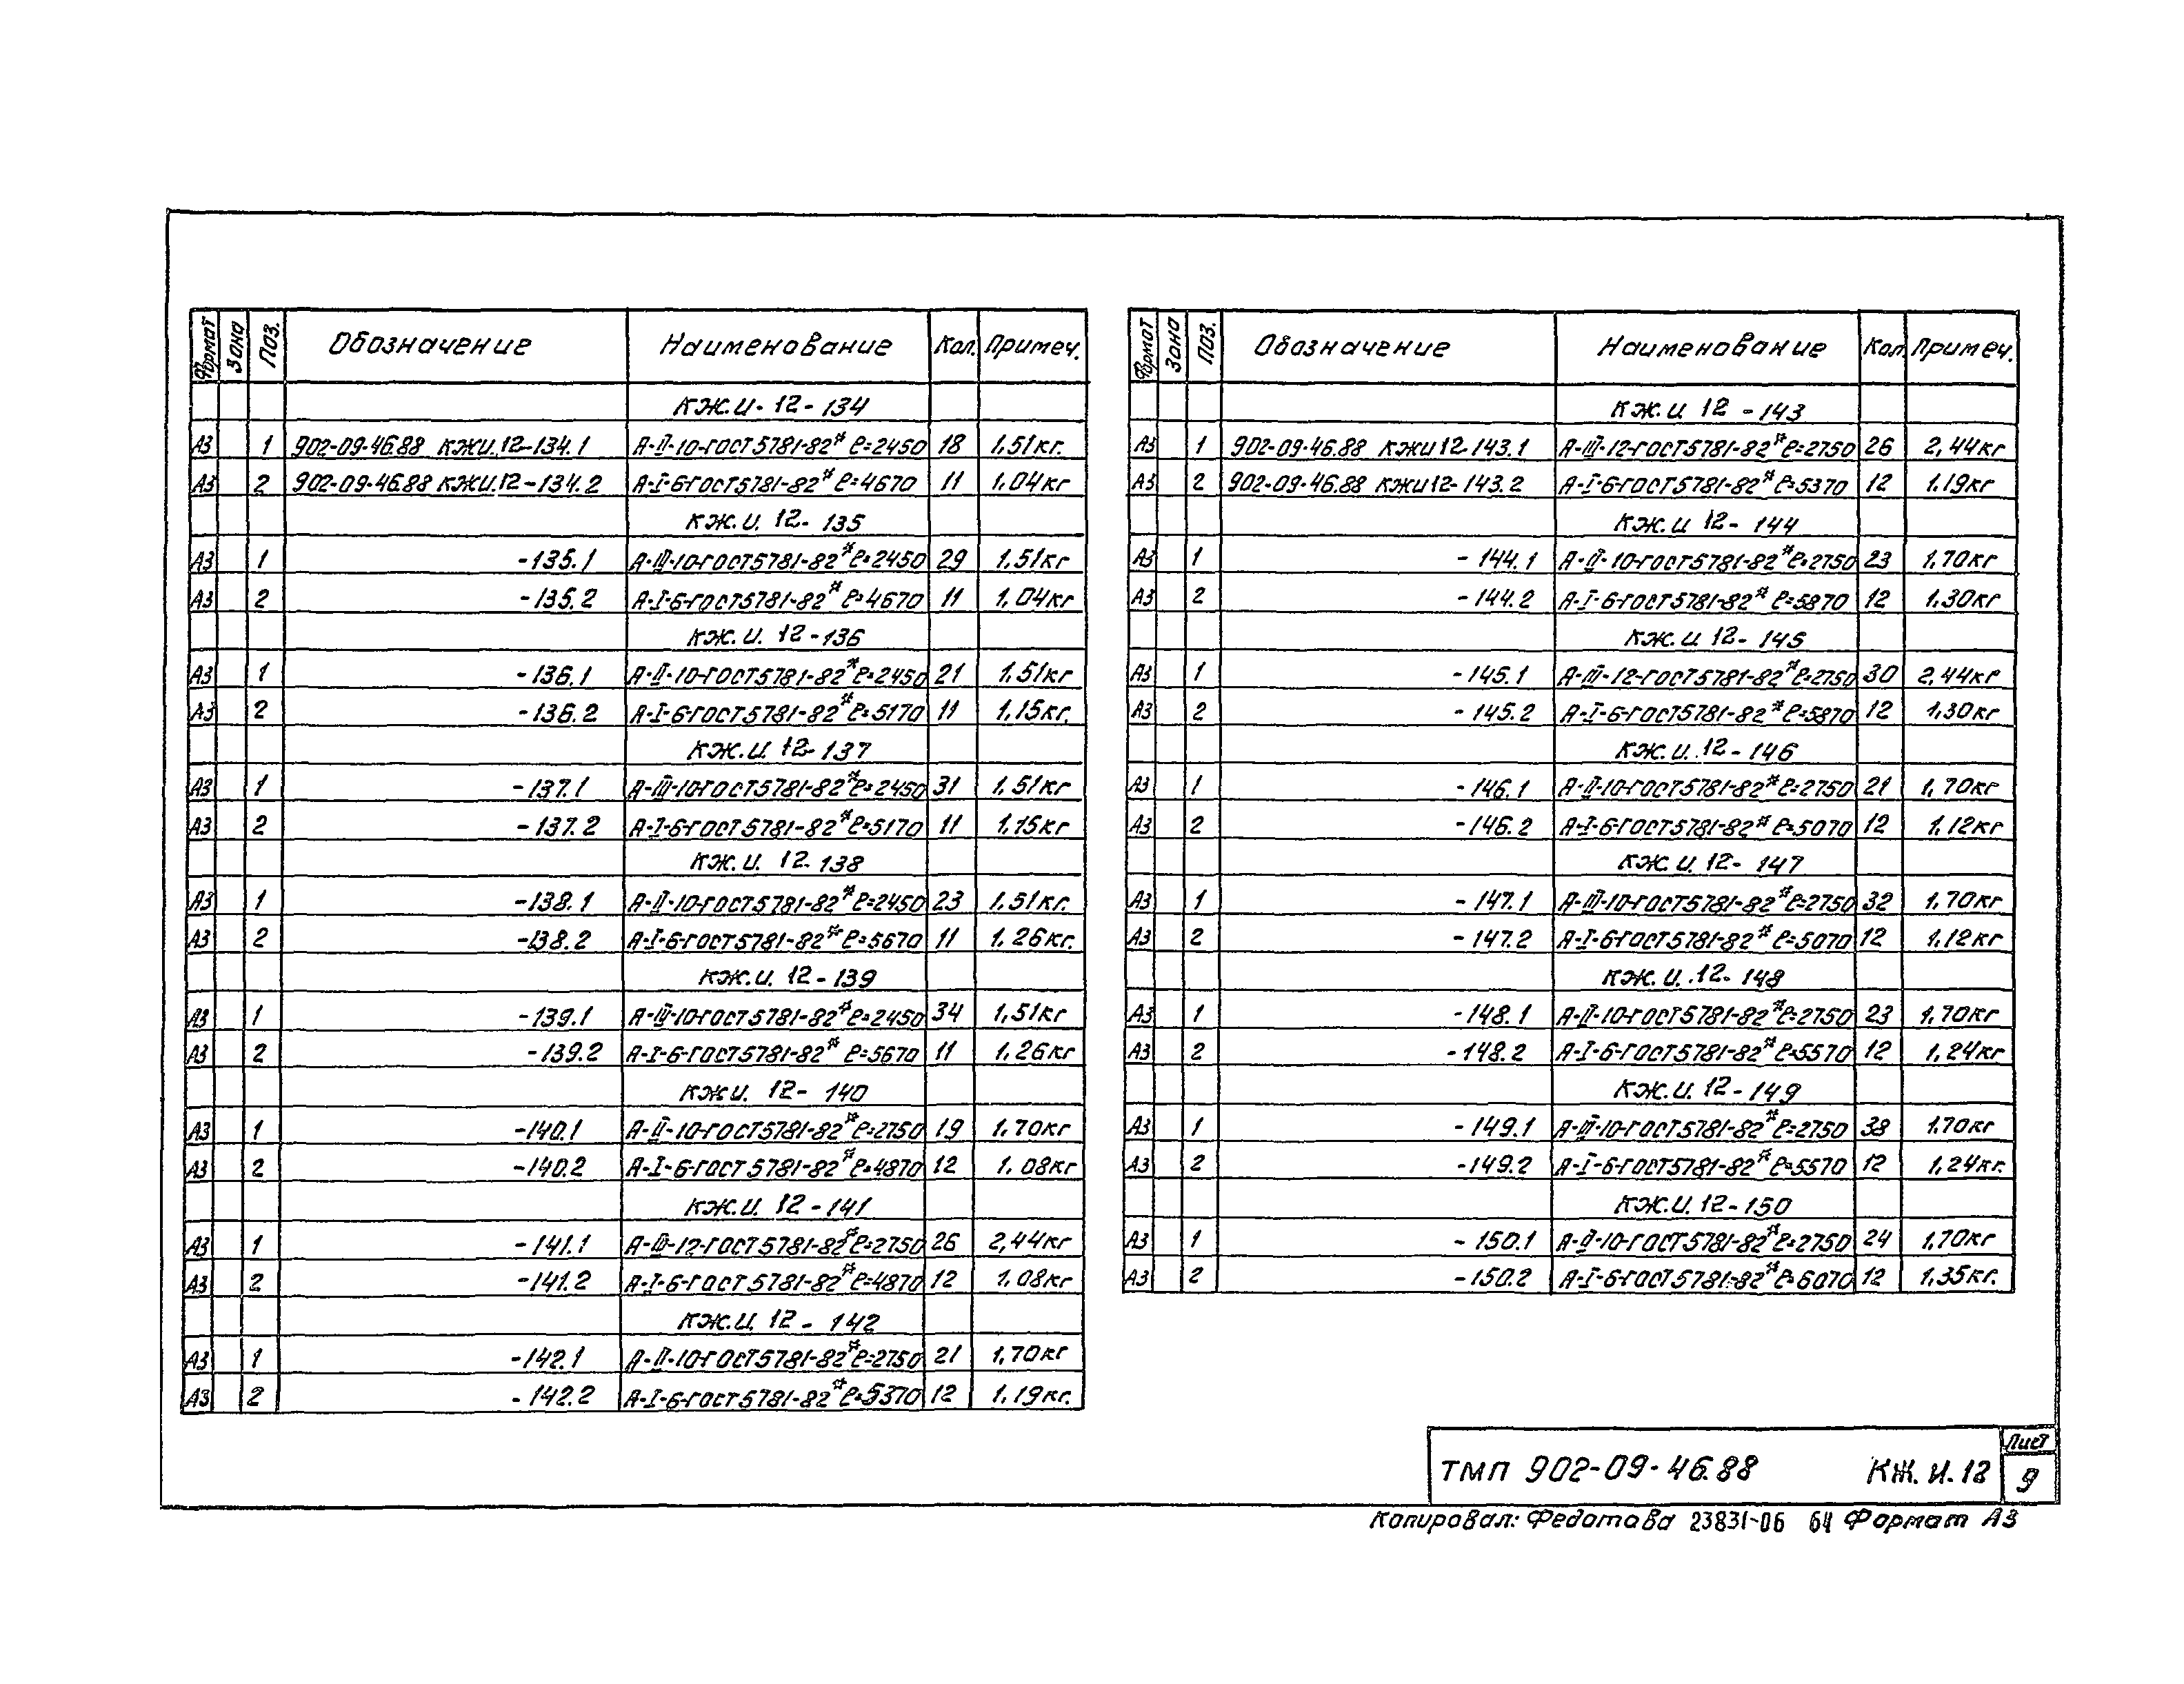 Формат Зона Поз. Обозначение Наименование Кол. Примеч.
КЖ.И. 12-134
А3 1 902-09-46.88 КЖИ.12-134.1 А-II-10-ГОСТ5781-82* ℓ=2450 18 1,51кг.
А3 2 902-09-46.88 КЖИ.12-134.2 А-I-6-ГОСТ5781-82* ℓ=4670 11 1,04кг
КЖ.И. 12-135
А3 1 -135.1 А-III-10-ГОСТ5781-82* ℓ=2450 29 1,51кг
А3 2 -135.2 А-I-6-ГОСТ5781-82* ℓ=4670 11 1,04кг
КЖ.И. 12-136
А3 1 -136.1 А-II-10-ГОСТ5781-82* ℓ=2450 21 1,51кг
А3 2 -136.2 А-I-6-ГОСТ5781-82* ℓ=5170 11 1,15кг.
КЖ.И. 12-137
А3 1 -137.1 А-III-10-ГОСТ5781-82* ℓ=2450 31 1,51кг
А3 2 -137.2 А-I-6-ГОСТ5781-82* ℓ=5170 11 1,15кг
КЖ.И. 12-138
А3 1 -138.1 А-II-10-ГОСТ5781-82* ℓ=2450 23 1,51кг.
А3 2 -138.2 А-I-6-ГОСТ5781-82* ℓ=5670 11 1,26кг.
КЖ.И. 12-139
А3 1 -139.1 А-III-10-ГОСТ5781-82* ℓ=2450 34 1,51кг
А3 2 -139.2 А-I-6-ГОСТ5781-82* ℓ=5670 11 1,26кг
КЖИ. 12-140
А3 1 -140.1 А-II-10-ГОСТ5781-82* ℓ=2750 19 1,70кг
А3 2 -140.2 А-I-6-ГОСТ5781-82* ℓ=4870 12 1,08кг
КЖ.И. 12-141
А3 1 -141.1 А-III-12-ГОСТ5781-82* ℓ=2750 26 2,44кг
А3 2 -141.2 А-I-6-ГОСТ5781-82* ℓ=4870 12 1,08кг
КЖ.И. 12-142
А3 1 -142.1 А-II-10-ГОСТ5781-82* ℓ=2750 21 1,70кг
А3 2 -142.2 А-I-6-ГОСТ5781-82* ℓ=5370 12 1,19кг.
Формат Зона Поз. Обозначение Наименование Кол. Примеч.
КЖ.И 12-143
А3 1 902-09-46.88 КЖИ12-143.1 А-III-12-ГОСТ5781-82* ℓ=2750 26 2,44кг
А3 2 902-09-46.88 КЖИ12-143.2 А-I-6-ГОСТ5781-82* ℓ=5370 12 1,19кг
КЖ.И 12-144
А3 1 -144.1 А-II-10-ГОСТ5781-82* ℓ=2750 23 1,70кг
А3 2 -144.2 А-I-6-ГОСТ5781-82* ℓ=5870 12 1,30кг
КЖ.И 12-145
А3 1 -145.1 А-III-12-ГОСТ5781-82* ℓ=2750 30 2,44кг
А3 2 -145.2 А-I-6-ГОСТ5781-82* ℓ=5870 12 1,30кг
КЖ.И. 12-146
А3 1 -146.1 А-II-10-ГОСТ5781-82* ℓ=2750 21 1,70кг
А3 2 -146.2 А-I-6-ГОСТ5781-82* ℓ=5070 12 1,12кг
КЖ.И. 12-147
А3 1 -147.1 А-III-10-ГОСТ5781-82* ℓ=2750 32 1,70кг
А3 2 -147.2 А-I-6-ГОСТ5781-82* ℓ=5070 12 1,12кг
КЖ.И. 12-148
А3 1 -148.1 А-II-10-ГОСТ5781-82* ℓ=2750 23 1,70кг
А3 2 -148.2 А-I-6-ГОСТ5781-82* ℓ=5570 12 1,24кг
КЖ.И. 12-149
А3 1 -149.1 А-III-10-ГОСТ5781-82* ℓ=2750 38 1,70кг
А3 2 -149.2 А-I-6-ГОСТ5781-82* ℓ=5570 12 1,24кг.
КЖ.И. 12-150
А3 1 -150.1 А-II-10-ГОСТ5781-82* ℓ=2750 24 1,70кг
А3 2 -150.2 А-I-6-ГОСТ5781-82* ℓ=6070 12 1,35кг.
ТМП 902-09-46.88 КЖ.И.12
Лист
9
Копировал: Федотова 23831-06 64 Формат А3